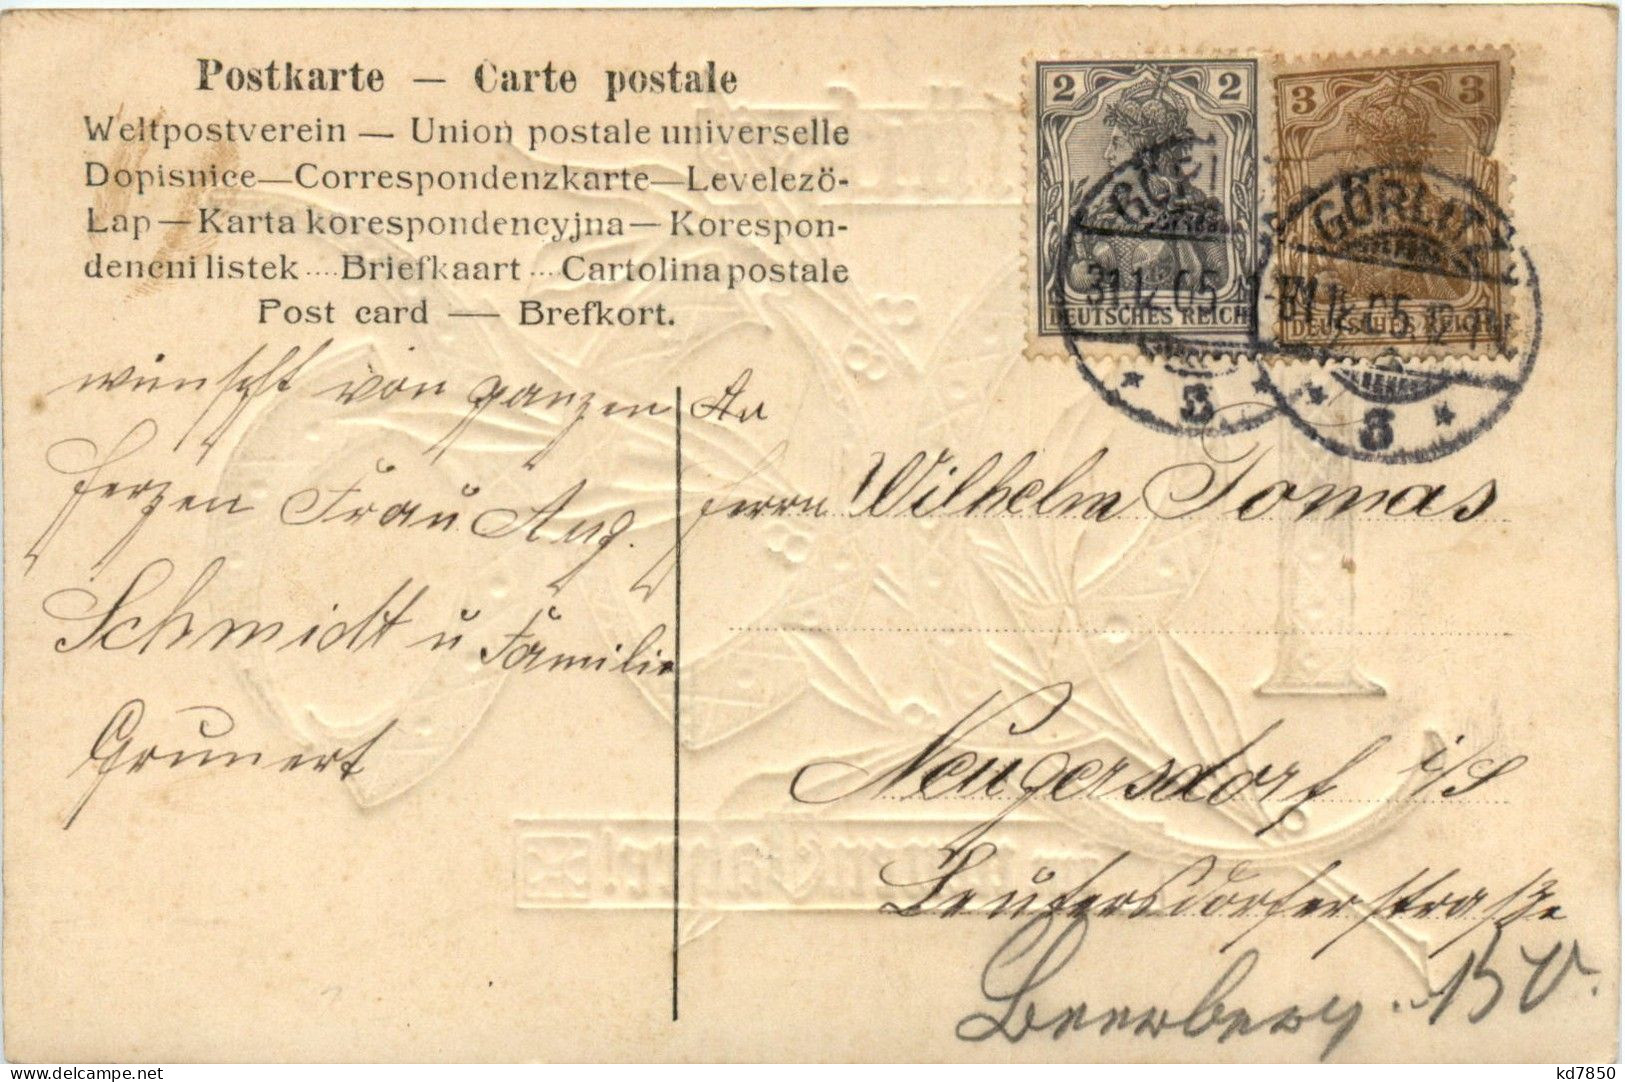 Postkarte — Carte postale
Weltpostverein — Union postale universelle
Dopisnice—Correspondenzkarte—Levelezö-
Lap—Karta korespondencyjna—Korespon-
dencni listek .... Briefkaart ... Cartolina postale
Post card — Brefkort.
2 2
DEUTSCHES REICH
3 3
DEUTSCHES REICH
GÖRLITZ
31.12.05
GÖRLITZ
31.12.05.12-1
wünscht von ganzen
Herzen Frau Aug.
Schmidt u Familie
Grunert
An
Herrn Wilhelm Tomas
Neugersdorf i/S
Leutersdorferstraße
Beerberg
kd7850